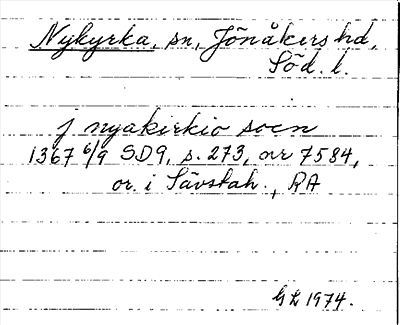 Nykyrka, sn, Jönåkers hd,
Söd. l.
j nyakirkio socn
1367 6/9 SD9, s. 273, nr 7584,
or. i Sävstah., RA
G L 1974.